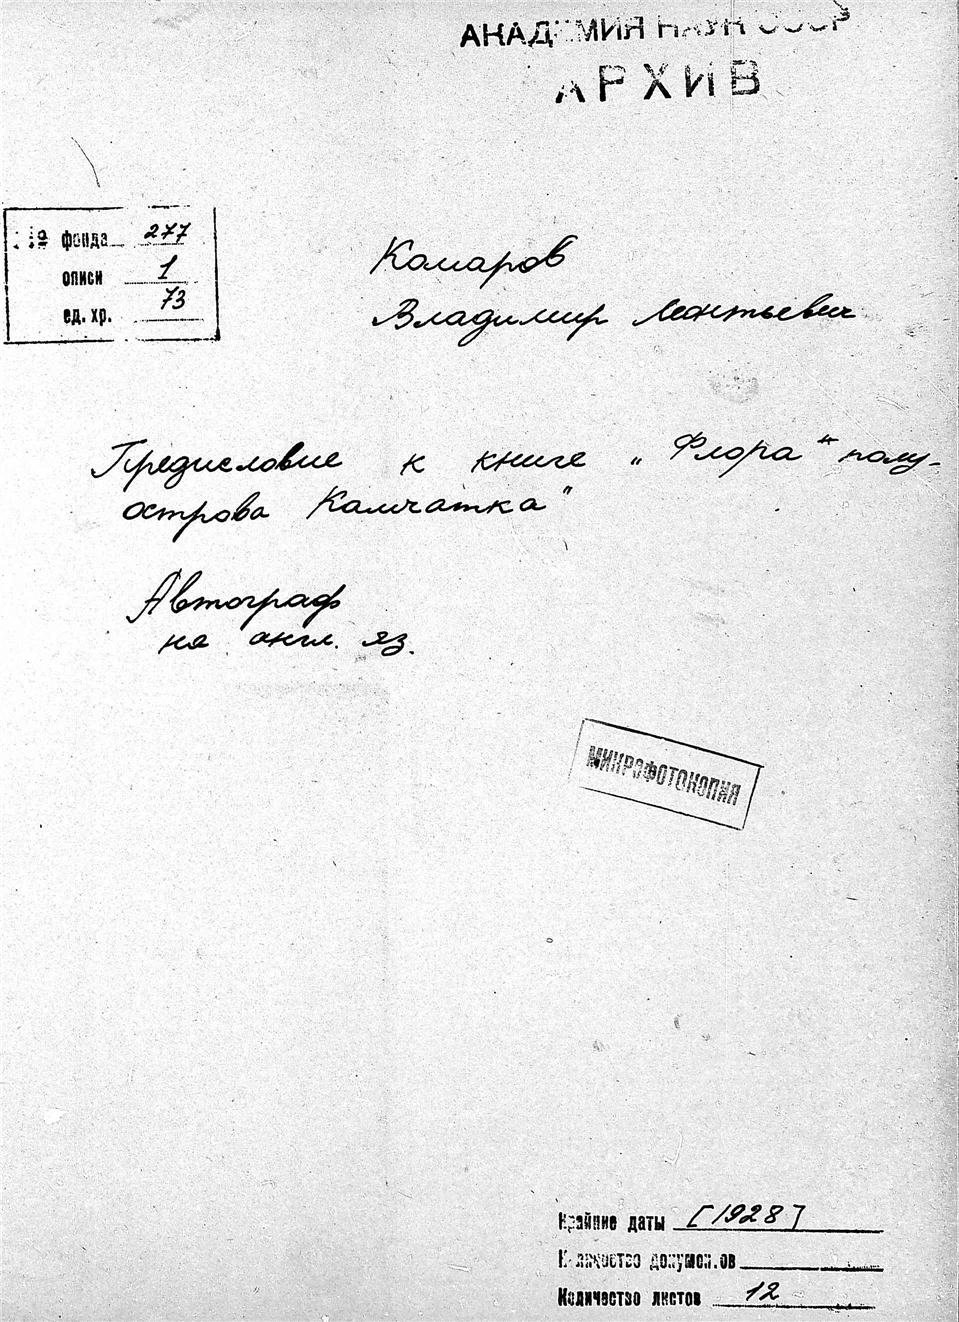 АКАДЕМИЯ НАУК СССР
АРХИВ
№ фонда 277
описи 1
ед. хр. 73
Комаров
Владимир Леонтьевич
Предисловие к книге „Флора" полу-
острова Камчатка"
Автограф
на англ. яз.
МИКРОФОТОКОПИЯ
Крайние даты [1928]
Количество докумен.ов
Количество листов 12